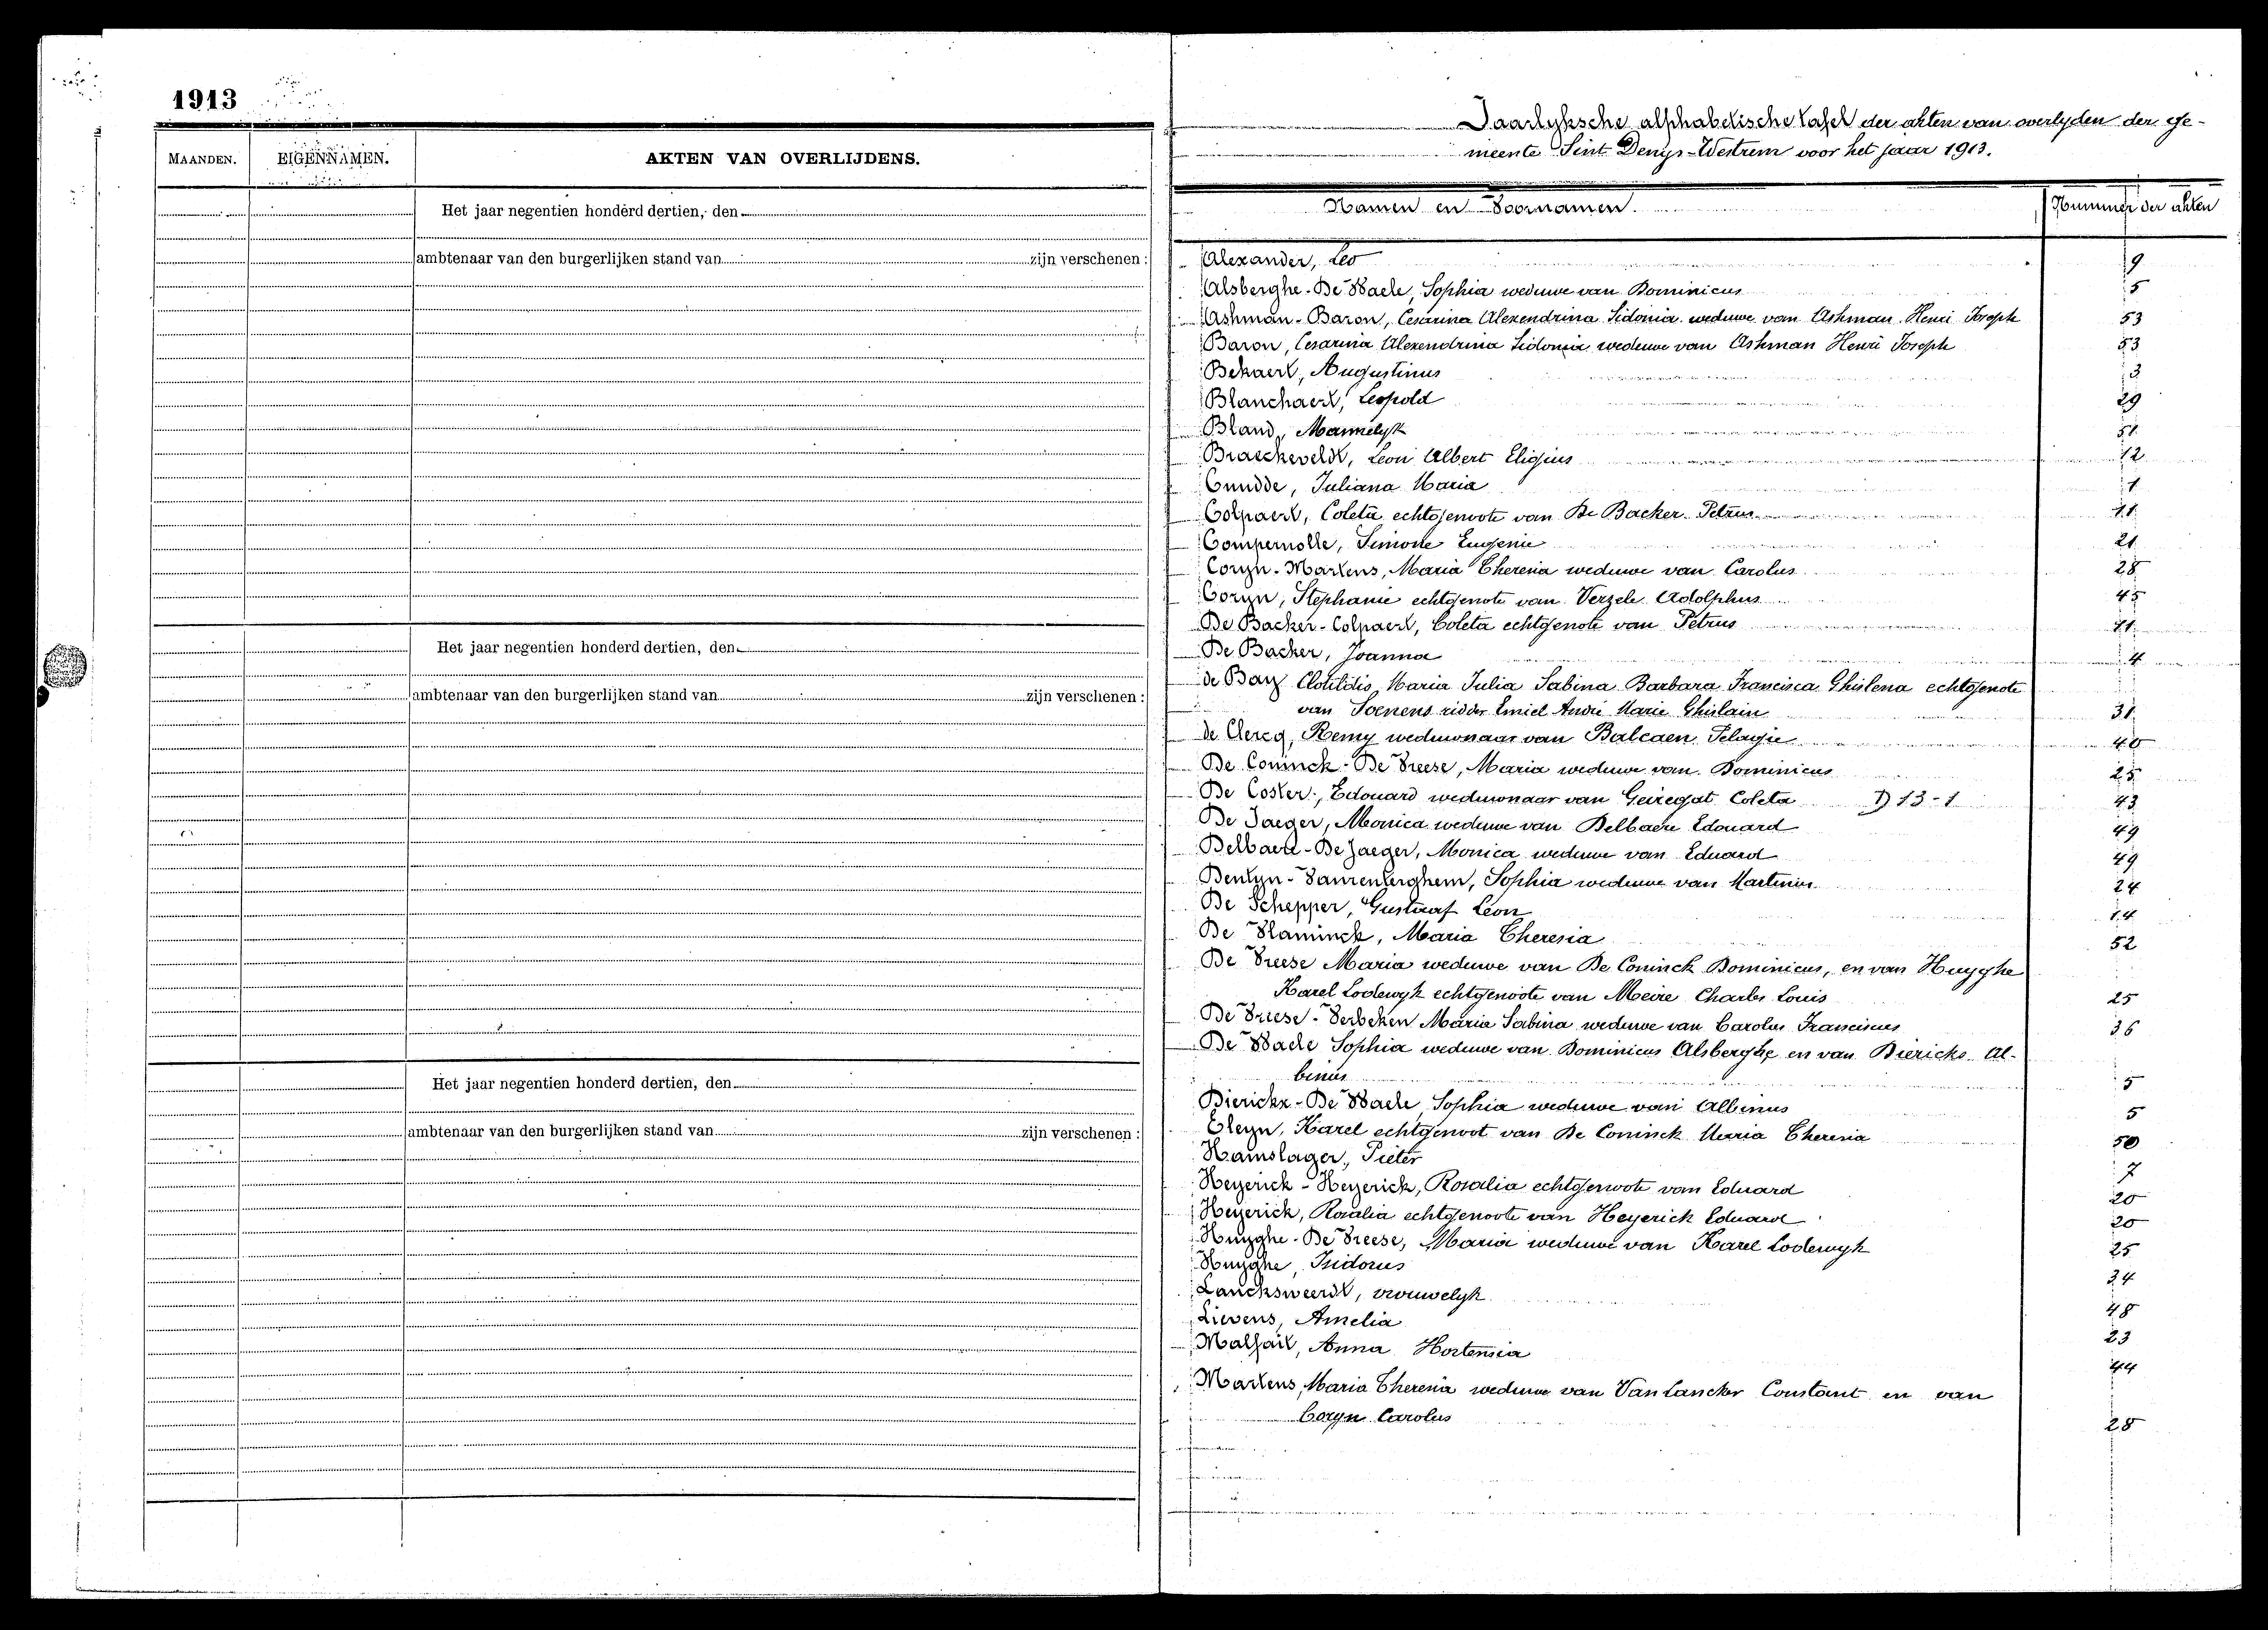 1913
MAANDEN. EIGENNAMEN. AKTEN VAN OVERLIJDENS.
Het jaar negentien honderd dertien, den
ambtenaar van den burgerlijken stand van zijn verschenen :
Het jaar negentien honderd dertien, den
ambtenaar van den burgerlijken stand van zijn verschenen :
Het jaar negentien honderd dertien, den
ambtenaar van den burgerlijken stand van zijn verschenen :
Jaarlyksche alphabetische tafel der akten van overlyden der ge-
meente Sint Denys-Westrem voor het jaar 1913.
Namen en Voornamen Nummers der akten
Alexander, Leo 9
Alsberghe-De Waele, Sophia weduwe van Dominicus 5
Ashman-Baron, Cesarina Alexendrina Sidonia weduwe van Ashman Henri Joseph 53
Baron, Cesarina Alexendrina Sidonia weduwe van Ashman Henri Joseph 53
Bekaert, Augustinus 3
Blanchaert, Leopold 29
Bland, Mannelyk 51
Braeckeveldt, Leon Albert Eligius 12
Cnudde, Juliana Maria 1
Colpaert, Coleta echtgenoote van De Backer Petrus 11
Compernolle, Simone Eugenie 21
Coryn-Martens, Maria Theresia weduwe van Carolus 28
Coryn, Stephanie echtgenote van Verzele Adolphus 45
De Backer-Colpaert, Coleta echtgenote van Petrus 11
De Backer, Joanna 4
de Bay Clotildis Maria Julia Sabina Barbara Francisca Ghislena echtgenote
van Soenens ridder Emiel André Marie Ghislain 31
de Clercq, Remy weduwnaar van Balcaen Pelagie 40
De Coninck-De Vreese, Maria weduwe van Dominicus 25
De Coster, Edouard weduwnaar van Geiregat Coleta D 13-1 43
De Jaeger, Monica weduwe van Delbaere Edouard 49
Delbaere-De Jaeger, Monica weduwe van Eduard 49
Dentyn-Vanrenterghem, Sophia weduwe van Martinus 24
De Schepper, Gustaaf Leon 14
De Vlaminck, Maria Theresia 52
De Vreese Maria weduwe van De Coninck Dominicus, en van Huyghe
Karel Lodewyk echtgenoote van Meire Charles Louis 25
De Vriese-Verbeken Maria Sabina weduwe van Carolus Franciscus 36
De Waele Sophia weduwe van Dominicus Alsberghe en van Dierickx Al-
binus 5
Dierickx-De Waele, Sophia weduwe van Albinus 5
Gleyn, Karel echtgenoot van De Coninck Maria Theresia 50
Hamslager, Pieter 7
Heyerick-Heyerick, Rosalia echtgenoote van Eduard 20
Heyerick, Rosalia echtgenoote van Heyerick Eduard 20
Huyghe-De Vreese, Maria weduwe van Karel Lodewyk 25
Huyghe, Isidorus 34
Lancksweerdt, vrouwelyk 48
Lievens, Amelia 23
Malfait, Anna Hortensia 44
Martens, Maria Theresia weduwe van Van Lancker Constant en van
Coryn Carolus 28